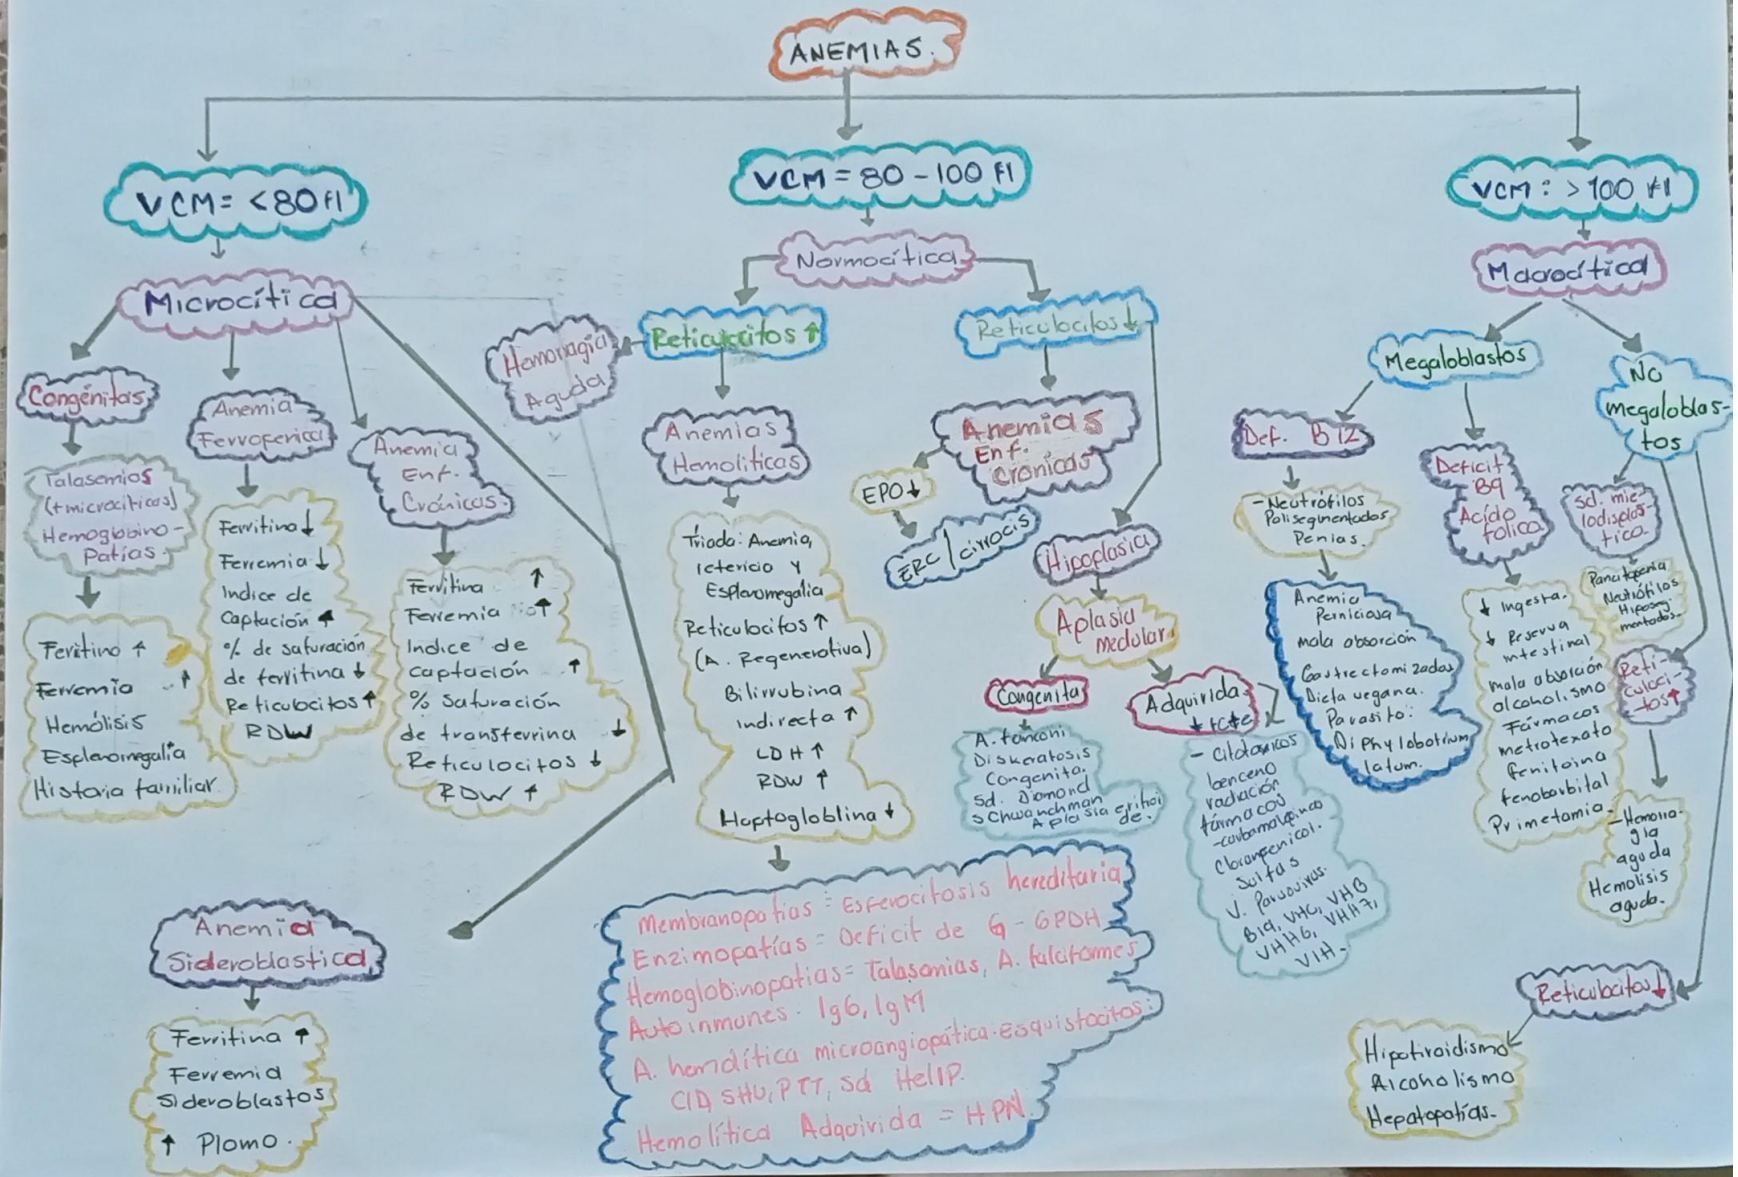 ANEMIAS.
VCM = <80 fl
Microcítica
Congénitas
Talasemias
(+microcíticas)
Hemoglobino-
Patías
Feritina ↑
Ferremia ↑
Hemólisis
Esplenomegalia
Historia familiar
Anemia
Ferropenica
Ferritina ↓
Ferremia ↓
Indice de
Captación ↑
% de saturación
de ferritina ↓
Reticulocitos ↑
RDW
Anemia
Enf.
Crónicas.
Ferritina ↑
Ferremia ↑
Indice de
captación ↑
% Saturación
de transferrina ↓
Reticulocitos ↓
RDW ↑
Anemia
Sideroblastica
Ferritina ↑
Ferremia
Sideroblastos
↑ Plomo.
VCM = 80 - 100 fl
Normocítica
Reticulocitos ↑
Hemorragia
Aguda
Anemias
Hemoliticas
Triada: Anemia,
Ictericia y
Esplenomegalia
Reticulocitos ↑
(A. Regenerativa)
Bilirrubina
indirecta ↑
LDH ↑
RDW ↑
Haptogloblina ↓
Membranopatias = Esferocitosis hereditaria
Enzimopatías = Deficit de G-6PDH
Hemoglobinopatias = Talasemias, A. falciformes
Autoinmunes. IgG, IgM
A. hemolítica microangiopática-esquistocitos:
CID, SHU, PTT, Sd HellP.
Hemolítica Adquirida = HPN.
Reticulocitos ↓
Anemias
Enf.
Cronicas
EPO ↓
ERC / cirrocis
Hipoplasia
Aplasia
medular
Congenita
A. fanconi
Diskeratosis
Congenita.
Sd. Diamond
Schwanchman
Aplasia eritroi
de.
Adquirida.
- Citotoxicos
benceno
radiación
fármacos
Cloranfenicol.
Sulfas
V. Parvovirus.
B19, VHC, VHB
VHH6, VHH7,
VIH.
VCM : >100 fl
Macrocítica
Megaloblastos
Def. B12
- Neutrófilos
Polisegmentados
Penias.
Anemia
Perniciosa
mala absorción
Gastrectomizados
Dieta vegana.
Parasito:
Diphylobotrium
latum.
Deficit
B9
Acído
folico
↓ Ingesta.
↓ Reserva
intestinal
mala absorción
alcoholismo
Fármacos
metrotexato
fenitoina
fenobarbital
Primetamia.
No
megaloblas-
tos
Sd. mie-
lodisplas-
tica.
Pancitopenia
Neutrófilos
Hiposeg
mentados.
Reti-
culoci-
tos ↑
- Hemorra-
gia
aguda
Hemolisis
aguda.
Reticulocitos ↓
Hipotiroidismo
Alcoholismo
Hepatopatías.